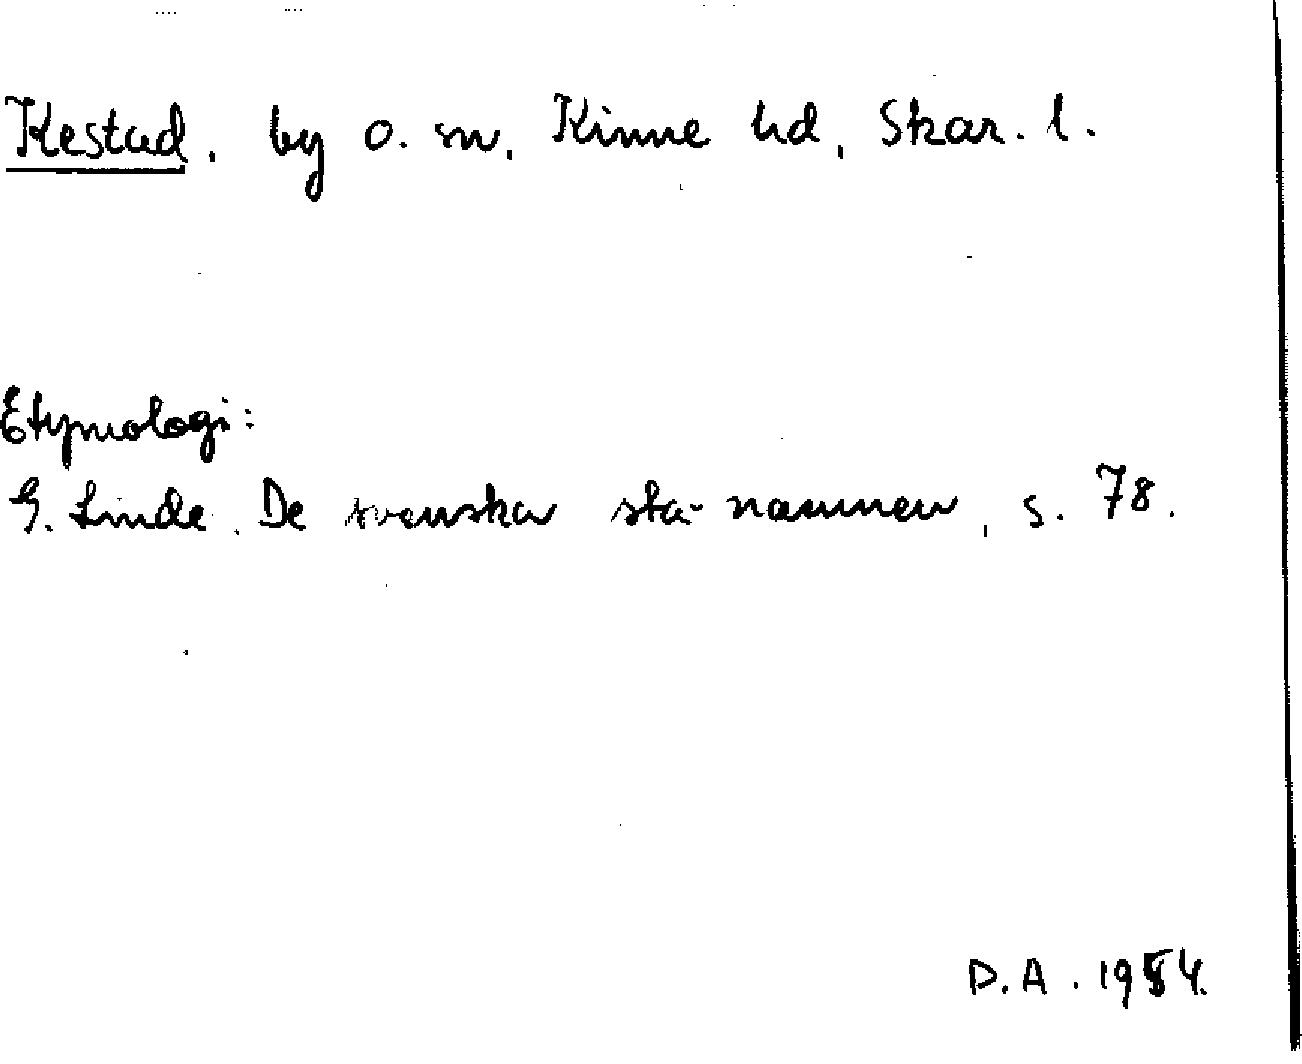 Kestad, by o. sn, Kinne hd, Skar. l.
Etymologi:
G. Linde, De svenska sta-namnen, s. 78.
D.A. 1954.